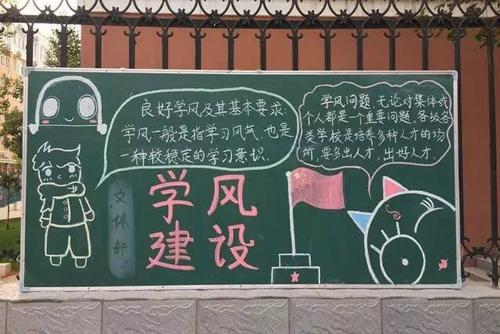 良好学风及其基本要求:
学风一般是指学习风气,也是
一种较稳定的学习意识.
学风问题,无论对集体或
个人都是一个重要问题.各级各
类学校是培养多种人才的场
所,要多出人才,出好人才.
文体部
学风
建设